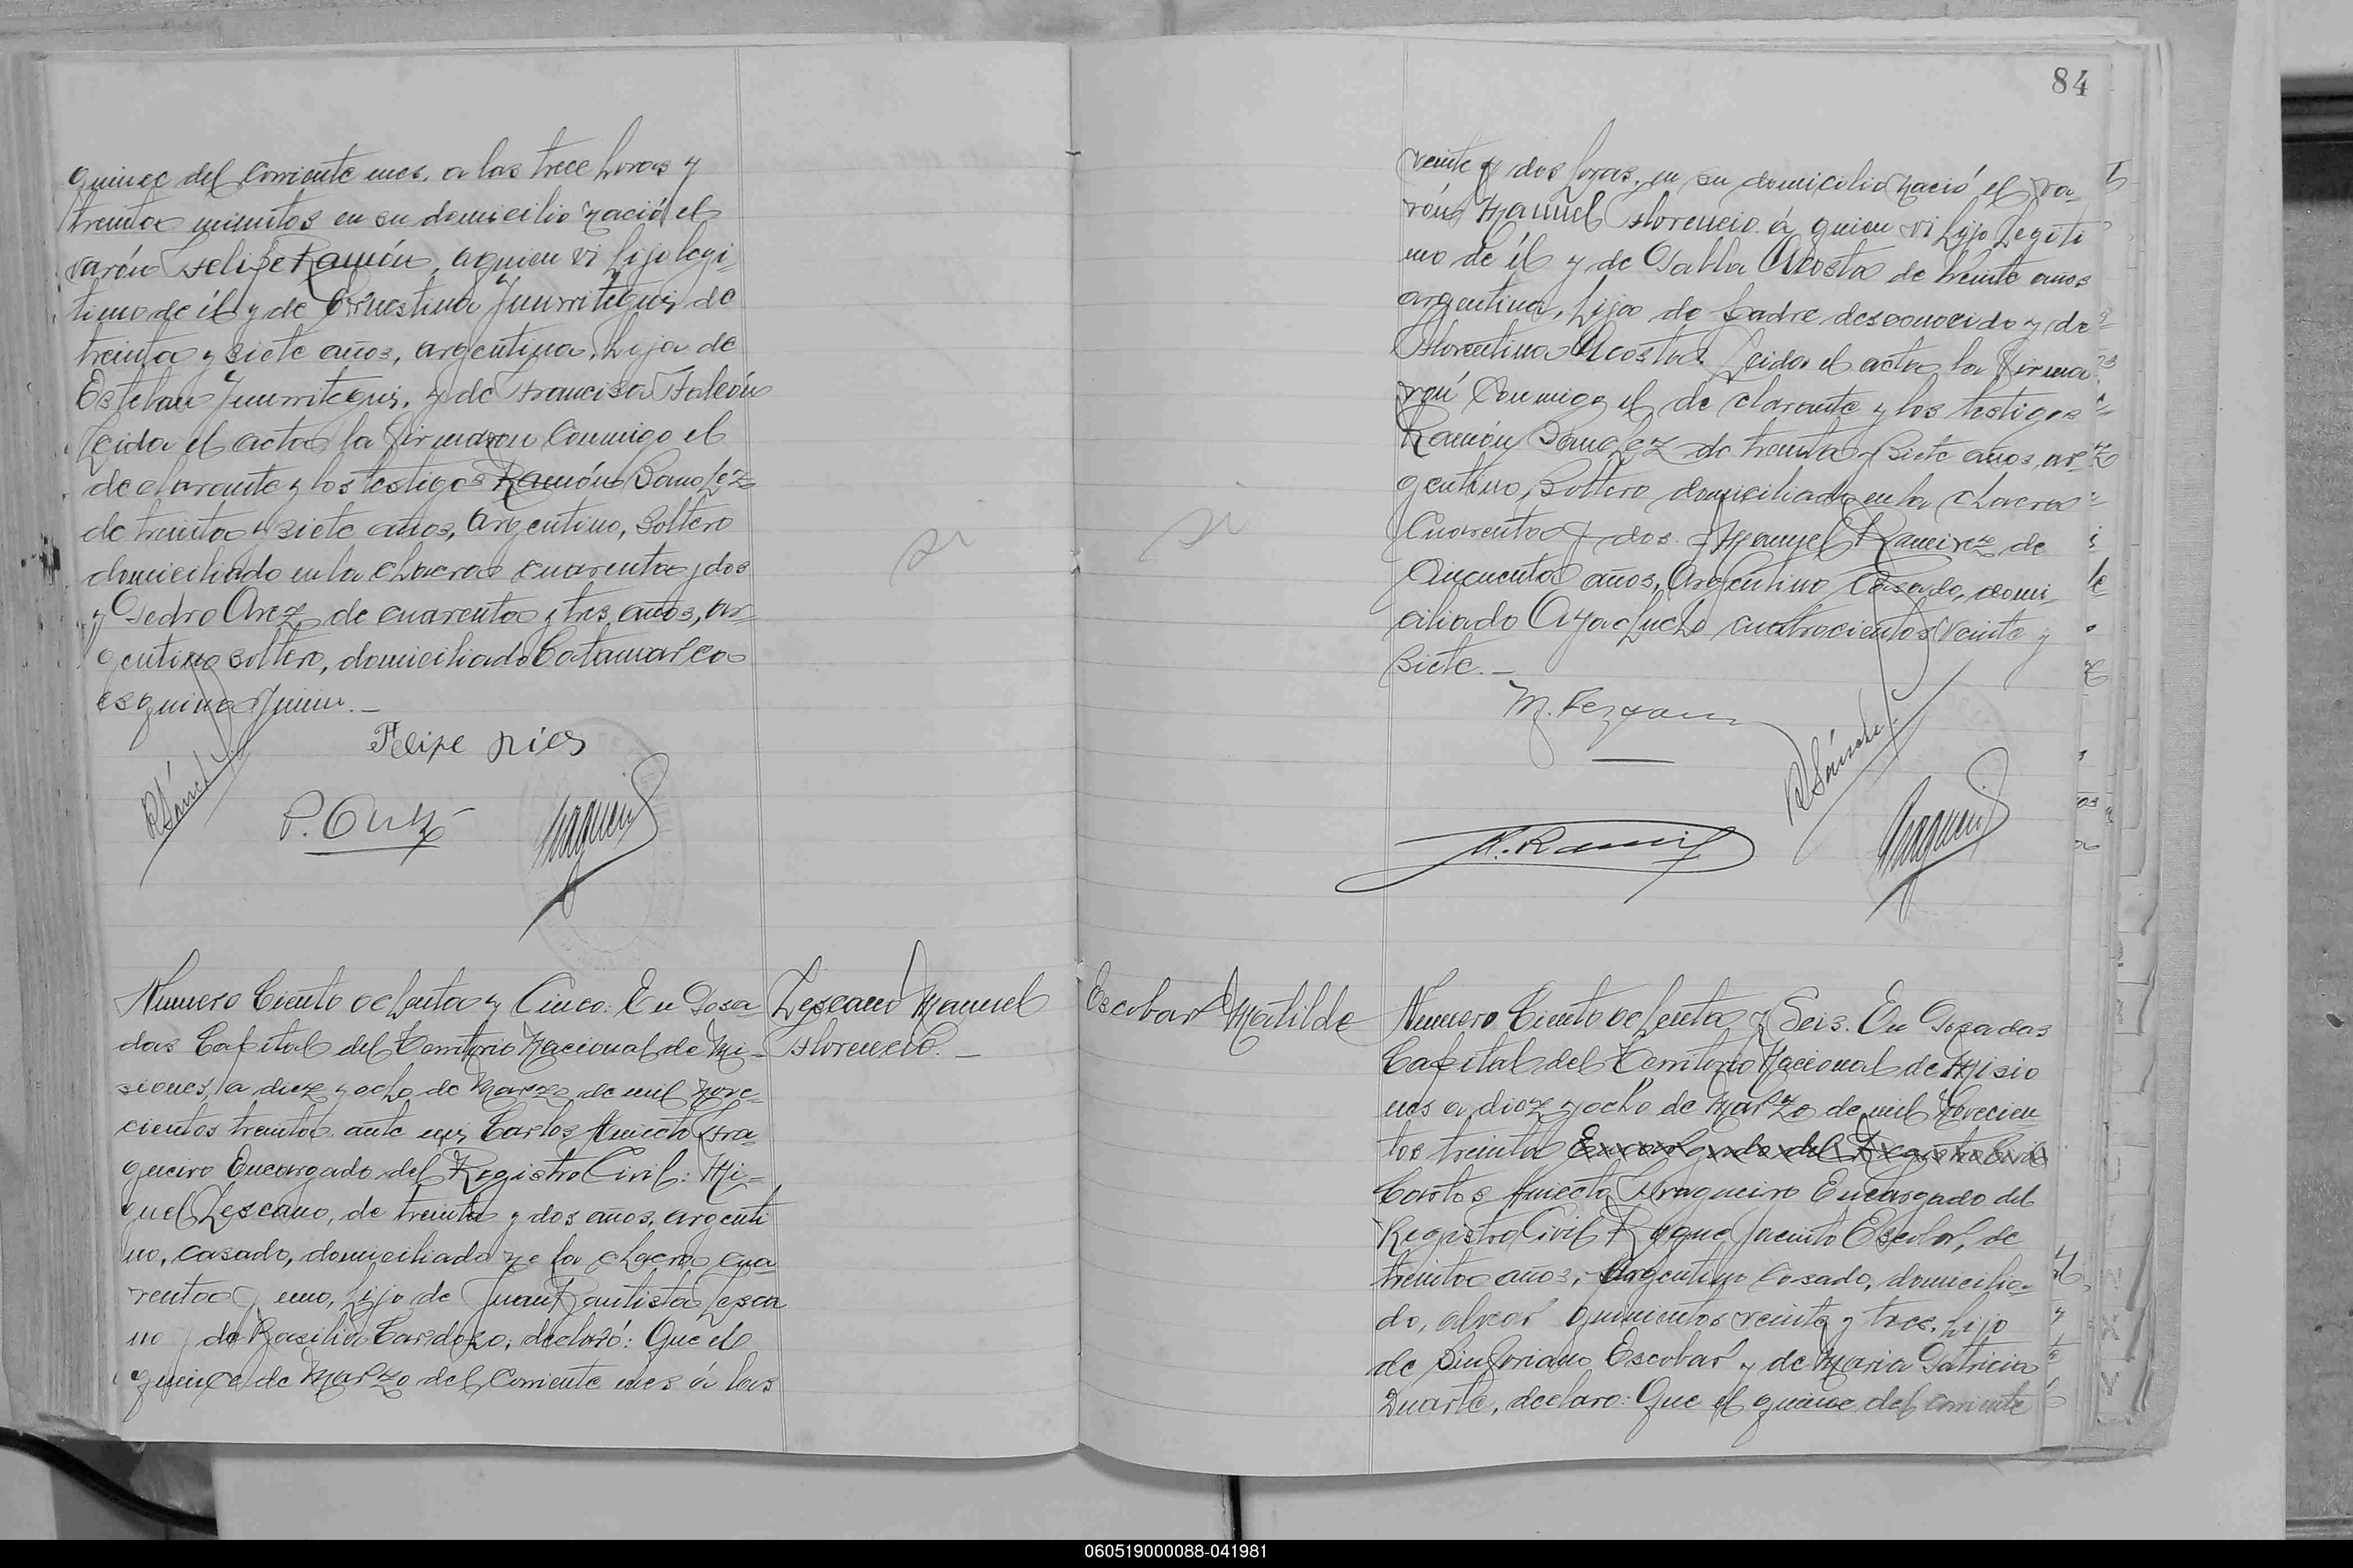 quince del corriente mes. a las trece horas y
treinta minutos en su domicilio nació el
varón Felipe Ramón, a quien vi hijo legi-
timo de él y de Ernestina Yurrritegui, de
treinta y siete años, argentina, hija de
Esteban Yurrritegui, y de Francisca Falcón
Leida el acta la firmaron conmigo el
declarante y los testigos Ramón Sanchez
de treinta y siete años, Argentino, Soltero
domiciliado en la chacra cuarenta y dos
y Pedro de cuarenta y tres años, ar-
gentino soltero, domiciliado Catamarca
esquina Junin.—
Felipe
R Sánchez
P.
Fragueiro
si
Numero Ciento ochenta y Cinco: En Posa-
das Capital del Territorio Nacional de Mi-
siones, a diez y ocho de Marzo de mil nove-
cientos treinta ante mi, Carlos Aniceto Fra-
gueiro Encargado del Registro Civil: Mi-
guel Lescano, de treinta y dos años, argenti
no, casado, domiciliado en la chacra cua
renta y uno, hijo de Juan Bautista Lesca
no y de Basilia Cardozo, declaró: Que el
quince de Marzo del corriente mes á las
Lescano Manuel
Florencio.—
84
veinte y dos horas, en su domicilio nació el va-
rón Manuel Florencio á quien vi hijo Legiti
mo de él y de Pabla Acosta de treinte años
argentina, hija de padre desconocido y de
Florentina Acosta. Leida el acta la firma
ron conmigo el declarante y los testigos
Ramón Sanchez de treinta y siete años, ar-
gentino, Soltero domiciliado en la chacra
Cuarenta y dos. y Manuel Ramirez de
Cincuenta años, Argentino Casado, domi-
ciliado Ayacucho cuatrocientos veinte y
siete.—
M. Lezcano
R Sánchez
M. Ramirez
Fragueiro
si
Escobar Matilde
Numero Ciento ochenta y Seis. En Posadas
Capital del Territorio Nacional de Misio
nes a diez y ocho de Marzo de mil Novecien
tos treinta Encargado del Registro Civil
Carlos Aniceto Fragueiro Encargado del
Registro Civil Roque Jacinto Escobar, de
treinta años, Argentino Casado, domicilia-
do, alvear quinientos veinte y tres, hijo
de Sinforiano Escobar y de Maria Patricia
Duarte, declaro: Que el quince del corriente
060519000088-041981